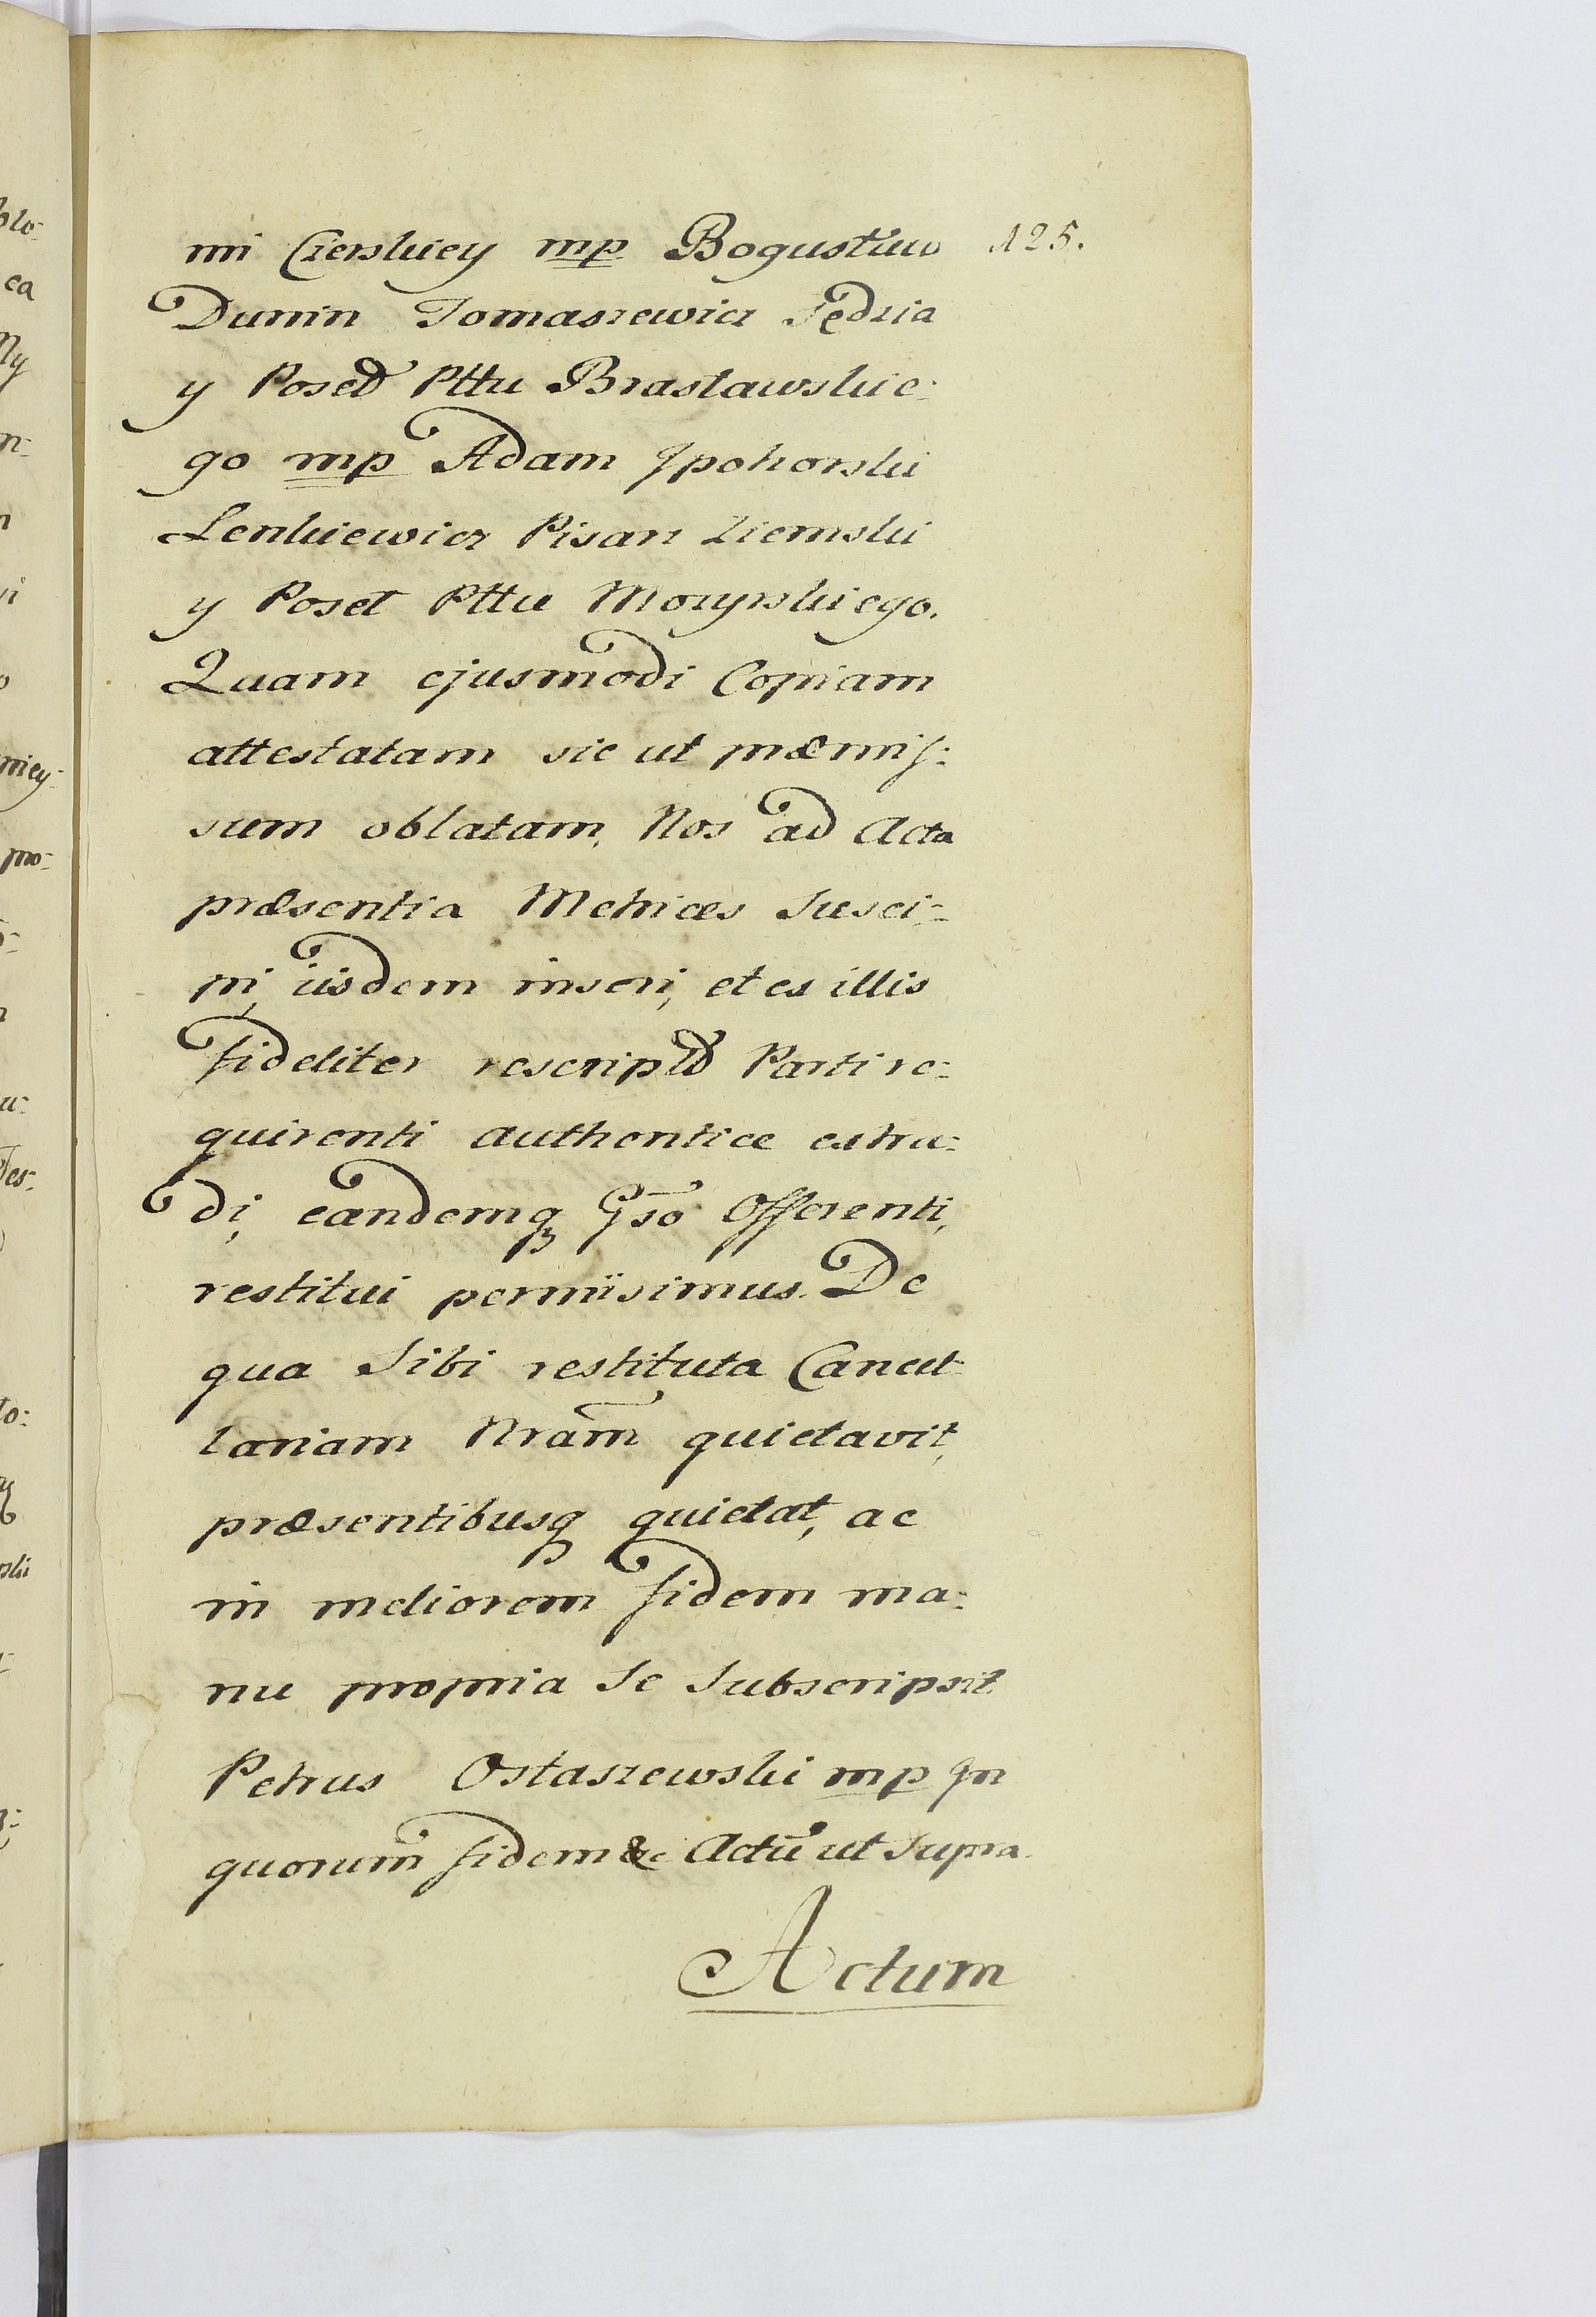 mi Czerskiey mp Bogusław 125.
Dunin Tomaszewicz Sędzia
y Poseł Pttu Brasławskie-
go mp Adam Jpohorski
Lenkiewicz Pisarz Ziemski
y Poseł Pttu Mozyrskiego.
Quam ejusmodi Copiam
attestatam sic ut præmis-
sum oblatam, Nos ad Acta
præsentia Metrices Susci-
pi, iisdem inseri, et ex illis
fideliter rescriptã Parti re-
quirenti authentice extra-
di, eandemq Jpsō Offerenti,
restitui permisimus. De
qua Sibi restituta Cancel-
lariam Nram̄ quietavit,
præsentibusq quietat, ac
in meliorem fidem ma-
nu propria Se Subscripsit
Petrus Ostaszewski mp Jn
quorum fidem &c Actū ut Supra
Actum